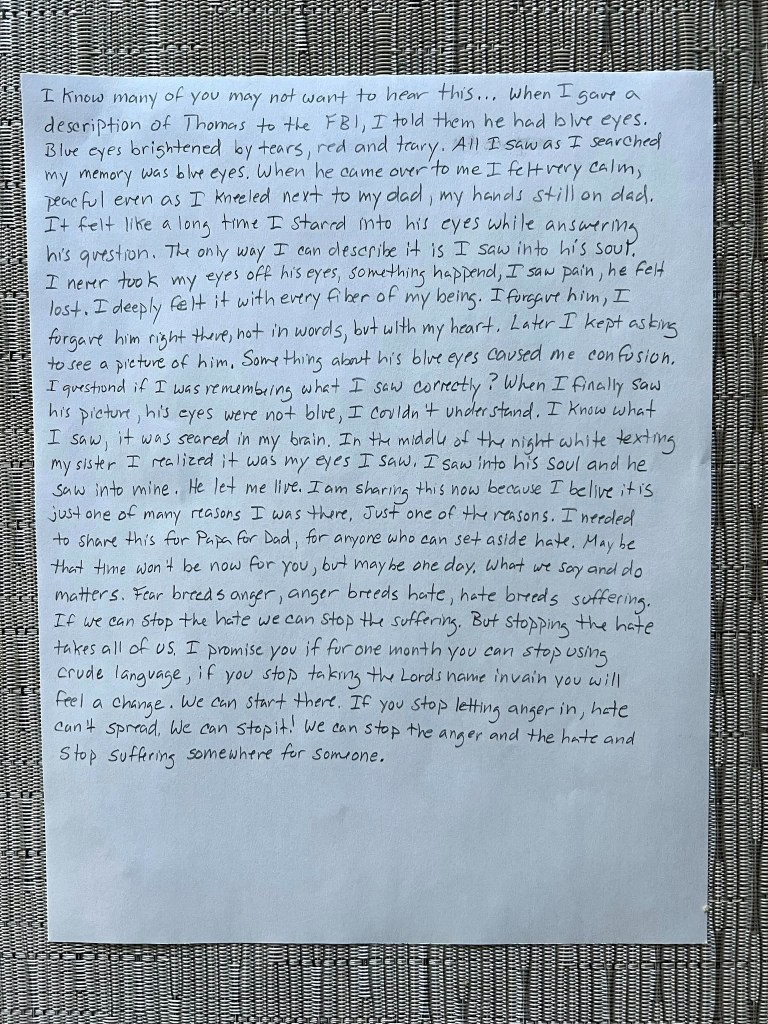 I know many of you may not want to hear this... When I gave a
description of Thomas to the FBI, I told them he had blue eyes.
Blue eyes brightened by tears, red and teary. All I saw as I searched
my memory was blue eyes. When he came over to me I felt very calm,
peacful even as I kneeled next to my dad, my hands still on dad.
It felt like a long time I stared into his eyes while answering
his question. The only way I can describe it is I saw into his soul.
I never took my eyes off his eyes, something happend, I saw pain, he felt
lost. I deeply felt it with every fiber of my being. I forgave him, I
forgave him right there, not in words, but with my heart. Later I kept asking
to see a picture of him. Something about his blue eyes caused me confusion.
I questiond if I was remembering what I saw correctly? When I finally saw
his picture, his eyes were not blue, I couldn't understand. I know what
I saw, it was seared in my brain. In the middle of the night while texting
my sister I realized it was my eyes I saw. I saw into his soul and he
saw into mine. He let me live. I am sharing this now because I belive it is
just one of many reasons I was there. Just one of the reasons. I needed
to share this for Papa for Dad, for anyone who can set aside hate. May be
that time won't be now for you, but maybe one day. What we say and do
matters. Fear breeds anger, anger breeds hate, hate breeds suffering.
If we can stop the hate we can stop the suffering. But stopping the hate
takes all of us. I promise you if for one month you can stop using
crude language, if you stop taking the Lords name in vain you will
feel a change. We can start there. If you stop letting anger in, hate
can't spread. We can stop it! We can stop the anger and the hate and
stop suffering somewhere for someone.